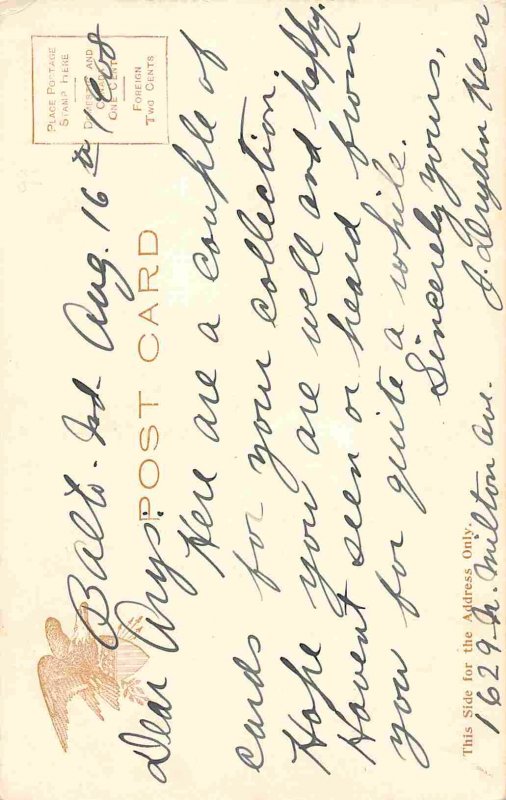 PLACE POSTAGE
STAMP HERE
DOMESTIC AND
CANADA
ONE CENT
FOREIGN
TWO CENTS
POST CARD
Balto. Md. Aug. 16th 1908
Dear Wrys:
Here are a couple of
cards for your collection.
Hope you are well and happy.
Havent seen or heard from
you for quite a while.
Sincerely yours,
J. Dryden Hess
This Side for the Address Only.
1629 N. Milton Ave.